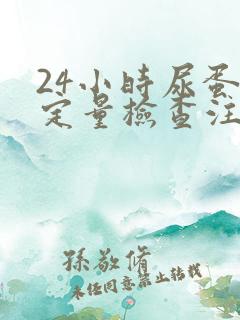 24小時尿蛋
定量檢查注
孫敬脩
未经同意禁止转载